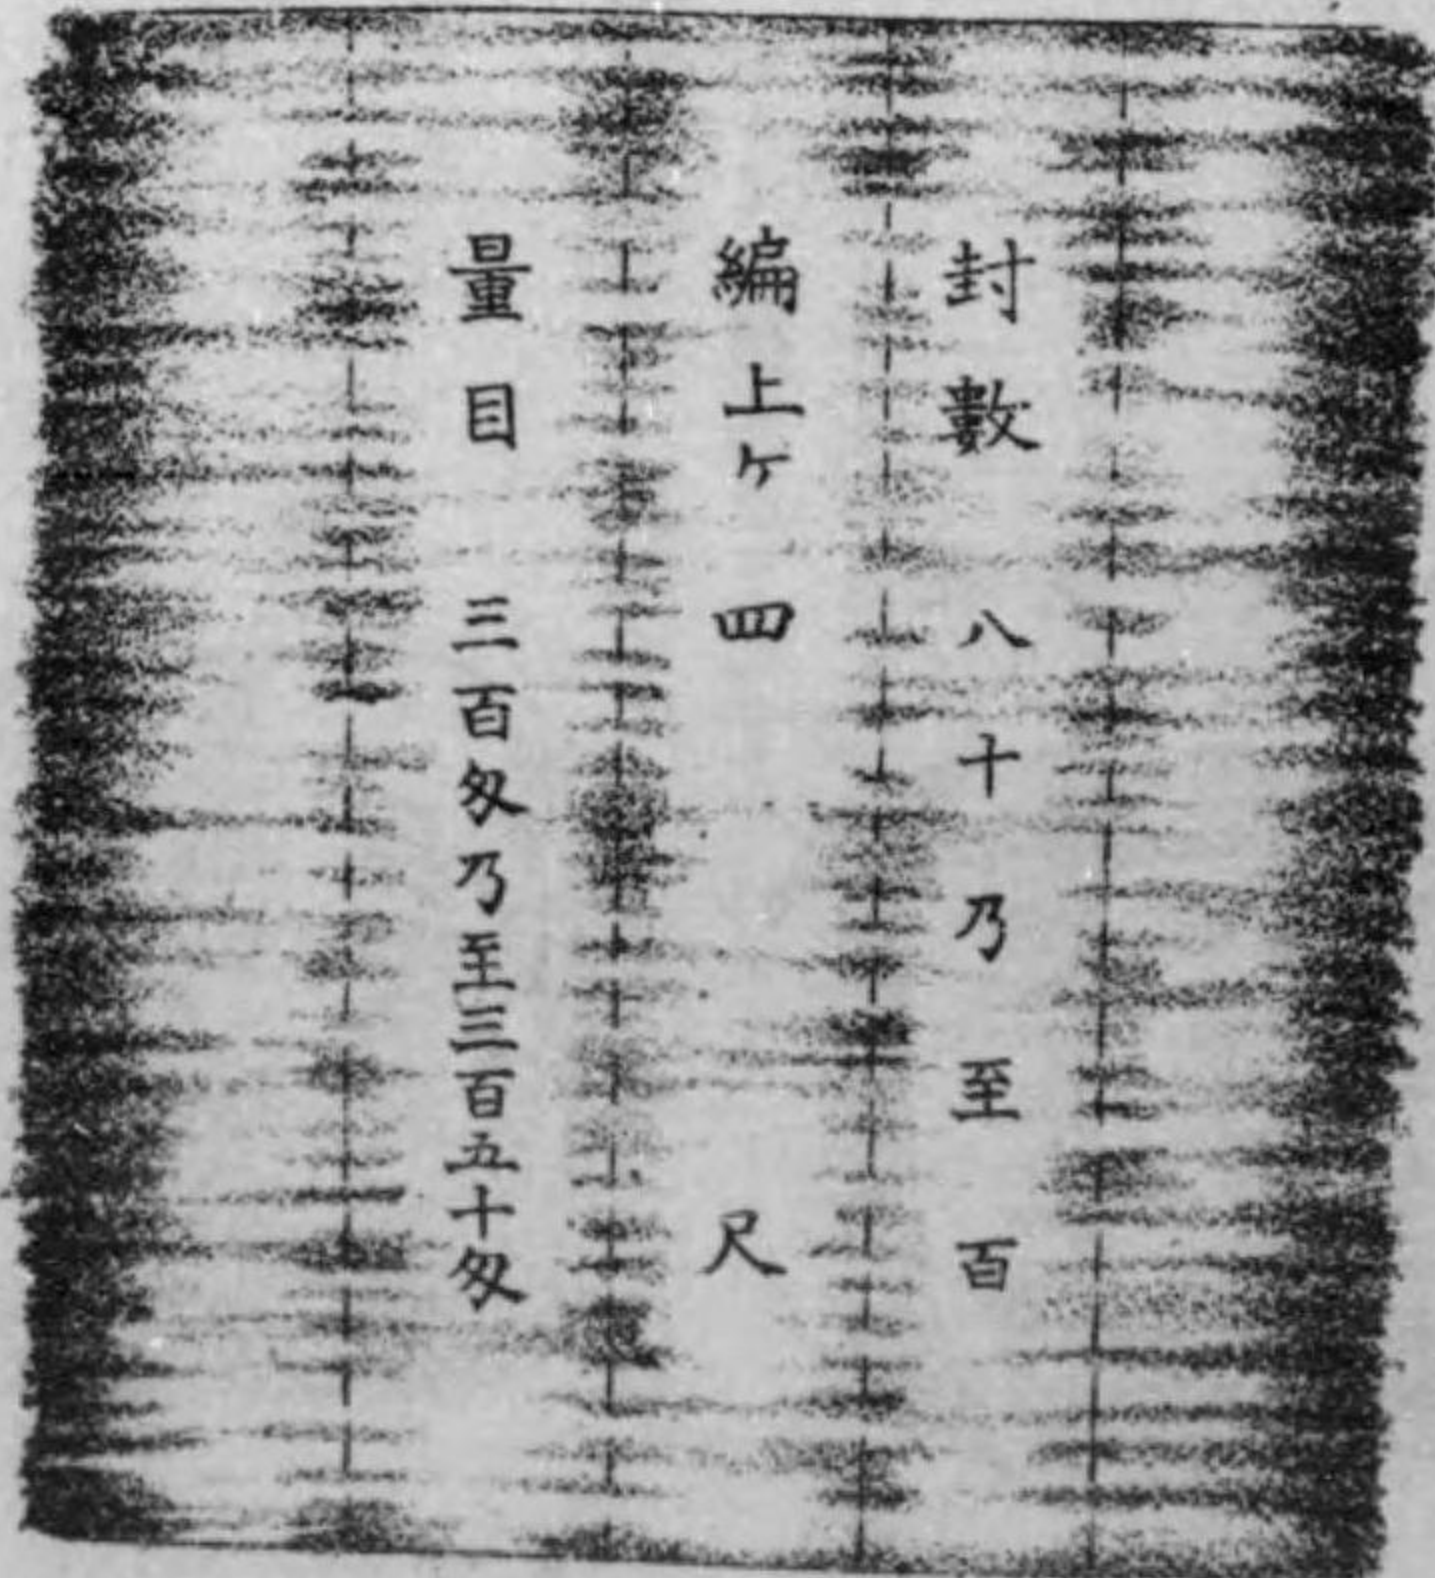 封數 八十乃至百
編上ケ 四尺
量目 三百匁乃至三百五十匁